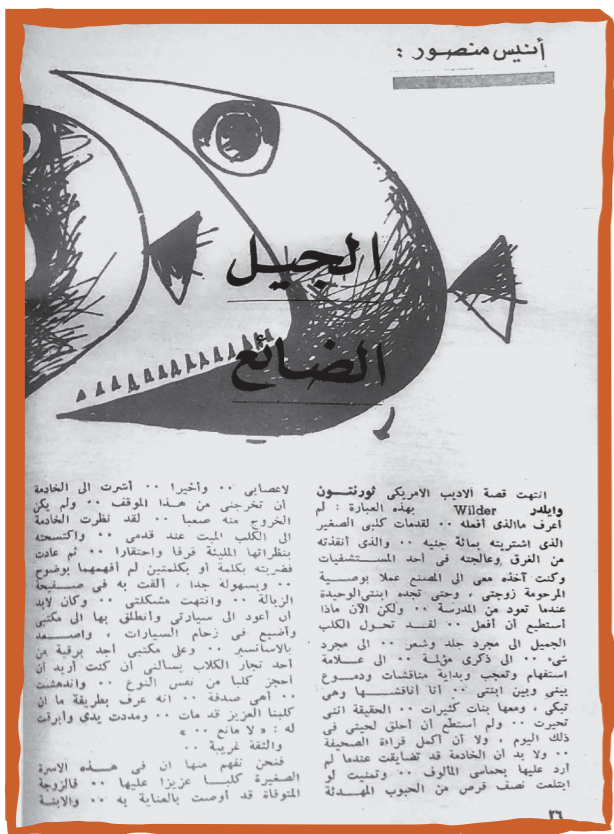 أنيس منصور :
الجيل
الضائع
انتهت قصة الاديب الامريكى ثورنتون
وايلدر Wilder بهذه العبارة : لم
أعرف ماالذى أفعله ٠٠ لقدمات كلبى الصغير
الذى اشتريته بمائة جنيه ٠٠ والذى أنقذته
من الغرق وعالجته فى أحد المستشفيات
وكنت آخذه معى الى المصنع عملا بوصية
المرحومة زوجتى ، وحتى تجده ابنتى الوحيدة
عندما تعود من المدرسة ٠٠ ولكن الآن ماذا
أستطيع أن أفعل ٠٠ لقد تحول الكلب
الجميل الى مجرد جلد وشعر ٠٠ الى مجرد
شىء ٠٠ الى ذكرى مؤلمة ٠٠ الى علامة
استفهام وتعجب وبداية مناقشات ودموع
بينى وبين ابنتى ٠٠ أنا أناقشها وهى
تبكى ، ومعها بنات كثيرات ٠٠ الحقيقة اننى
تحيرت ٠٠ ولم أستطع أن أحلق لحيتى فى
ذلك اليوم ، ولا أن أكمل قراءة الصحيفة
٠٠ ولا بد أن الخادمة قد تضايقت عندما لم
أرد عليها بحماسى المألوف ٠٠ وتمنيت لو
ابتلعت نصف قرص من الحبوب المهدئة
لاعصابى ٠٠ وأخيرا ٠٠ أشرت الى الخادمة
أن تخرجنى من هذا الموقف ٠٠ ولم يكن
الخروج منه صعبا ٠٠ لقد نظرت الخادمة
الى الكلب الميت عند قدمى ٠٠ واكتسحته
بنظراتها المليئة قرفا واحتقارا ٠٠ ثم عادت
فضربته بكلمة أو بكلمتين لم أفهمهما بوضوح
٠٠ وبسهولة جدا ، ألقت به فى صفيحة
الزبالة ٠٠ وانتهت مشكلتى ٠٠ وكان لابد
أن أعود الى سيارتى وأنطلق بها الى مكتبى
وأضيع فى زحام السيارات ، وأصعد
بالاسانسير ٠٠ وعلى مكتبى أجد برقية من
أحد تجار الكلاب يسألنى ان كنت أريد أن
أحجز كلبا من نفس النوع ٠٠ واندهشت
٠٠ أهى صدفة ٠٠ أنه عرف بطريقة ما ان
كلبنا العزيز قد مات ٠٠ ومددت يدى وأبرقت
له : « لا مانع ٠٠ »
والثقة غريبة ٠٠
فنحن نفهم منها ان فى هذه الاسرة
الصغيرة كلبا عزيزا عليها ٠٠ فالزوجة
المتوفاة قد أوصت بالعناية به ٠٠ والابنة
٢٦